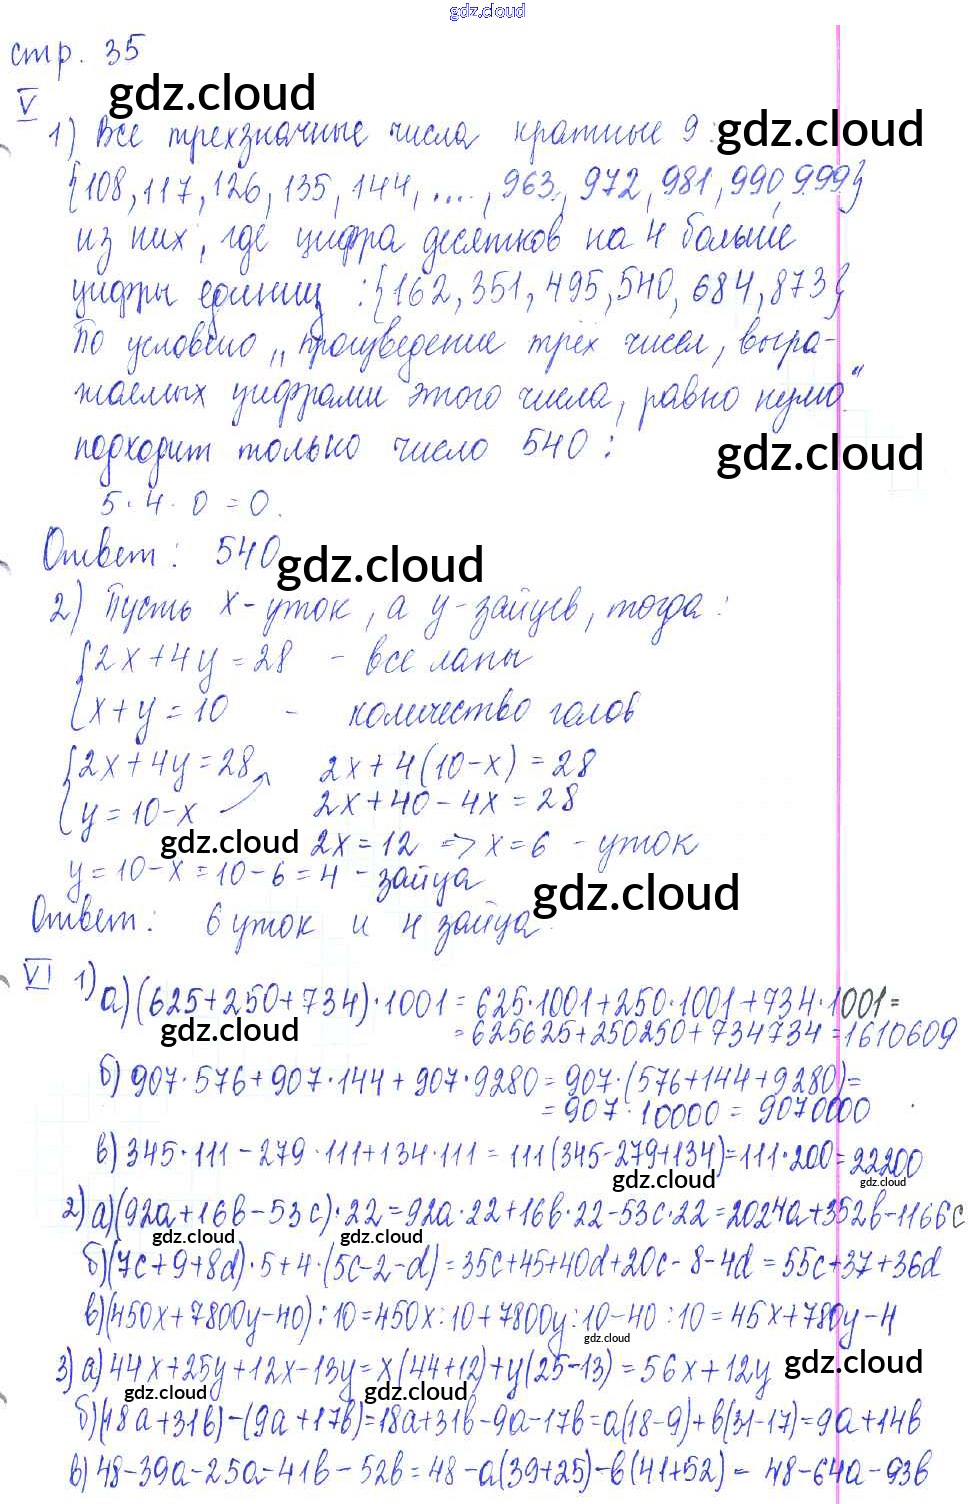 gdz.cloud
стр. 35
V gdz.cloud
1) Все трехзначные числа кратные 9: gdz.cloud
{108, 117, 126, 135, 144, ...., 963, 972, 981, 990, 999}
из них, где цифра десятков на 4 больше
цифры единиц : {162, 351, 495, 540, 684, 873}
По условию „произведение трёх чисел, выра-
жаемых цифрами этого числа, равно нулю“
подходит только число 540 : gdz.cloud
5 · 4 · 0 = 0.
Ответ : 540 gdz.cloud
2) Пусть х - уток, а у - зайцев, тогда :
{2x + 4y = 28 - все лапы
{x + y = 10 - количество голов
{2x + 4y = 28 2x + 4(10 - x) = 28
{y = 10 - x 2x + 40 - 4x = 28
gdz.cloud 2x = 12 => x = 6 - уток
y = 10 - x = 10 - 6 = 4 - зайца gdz.cloud
Ответ : 6 уток и 4 зайца
VI 1) а) (625 + 250 + 734) · 1001 = 625 · 1001 + 250 · 1001 + 734 · 1001 =
gdz.cloud = 625625 + 250250 + 734734 = 1610609
б) 907 · 576 + 907 · 144 + 907 · 9280 = 907 · (576 + 144 + 9280) =
= 907 · 10000 = 9070000
в) 345 · 111 - 279 · 111 + 134 · 111 = 111 (345 - 279 + 134) = 111 · 200 = 22200
gdz.cloud gdz.cloud
2) а) (92a + 16b - 53c) · 22 = 92a · 22 + 16b · 22 - 53c · 22 = 2024a + 352b - 1166c
gdz.cloud gdz.cloud
б) (7c + 9 + 8d) · 5 + 4 · (5c - 2 - d) = 35c + 45 + 40d + 20c - 8 - 4d = 55c + 37 + 36d
в) (450x + 7800y - 40) : 10 = 450x : 10 + 7800y : 10 - 40 : 10 = 45x + 780y - 4
gdz.cloud
3) а) 44x + 25y + 12x - 13y = x(44 + 12) + y(25 - 13) = 56x + 12y gdz.cloud
gdz.cloud gdz.cloud
б) (18a + 31b) - (9a + 17b) = 18a + 31b - 9a - 17b = a(18 - 9) + b(31 - 17) = 9a + 14b
в) 48 - 39a - 25a - 41b - 52b = 48 - a(39 + 25) - b(41 + 52) = 48 - 64a - 93b